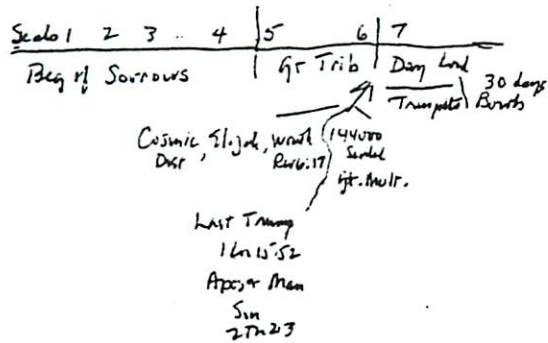 Seals 1 2 3 .. 4 5 6 7
Beg of Sorrows Gr Trib Day Lord 30 days
Trumpets Bowls
Cosmic, Elijah, Wrath 144000
Dist Rev 6:17 Sealed
gt. Mult.
Last Trump
1 Cor 15:52
Apos, & Man
Sin
2 Th 2:3